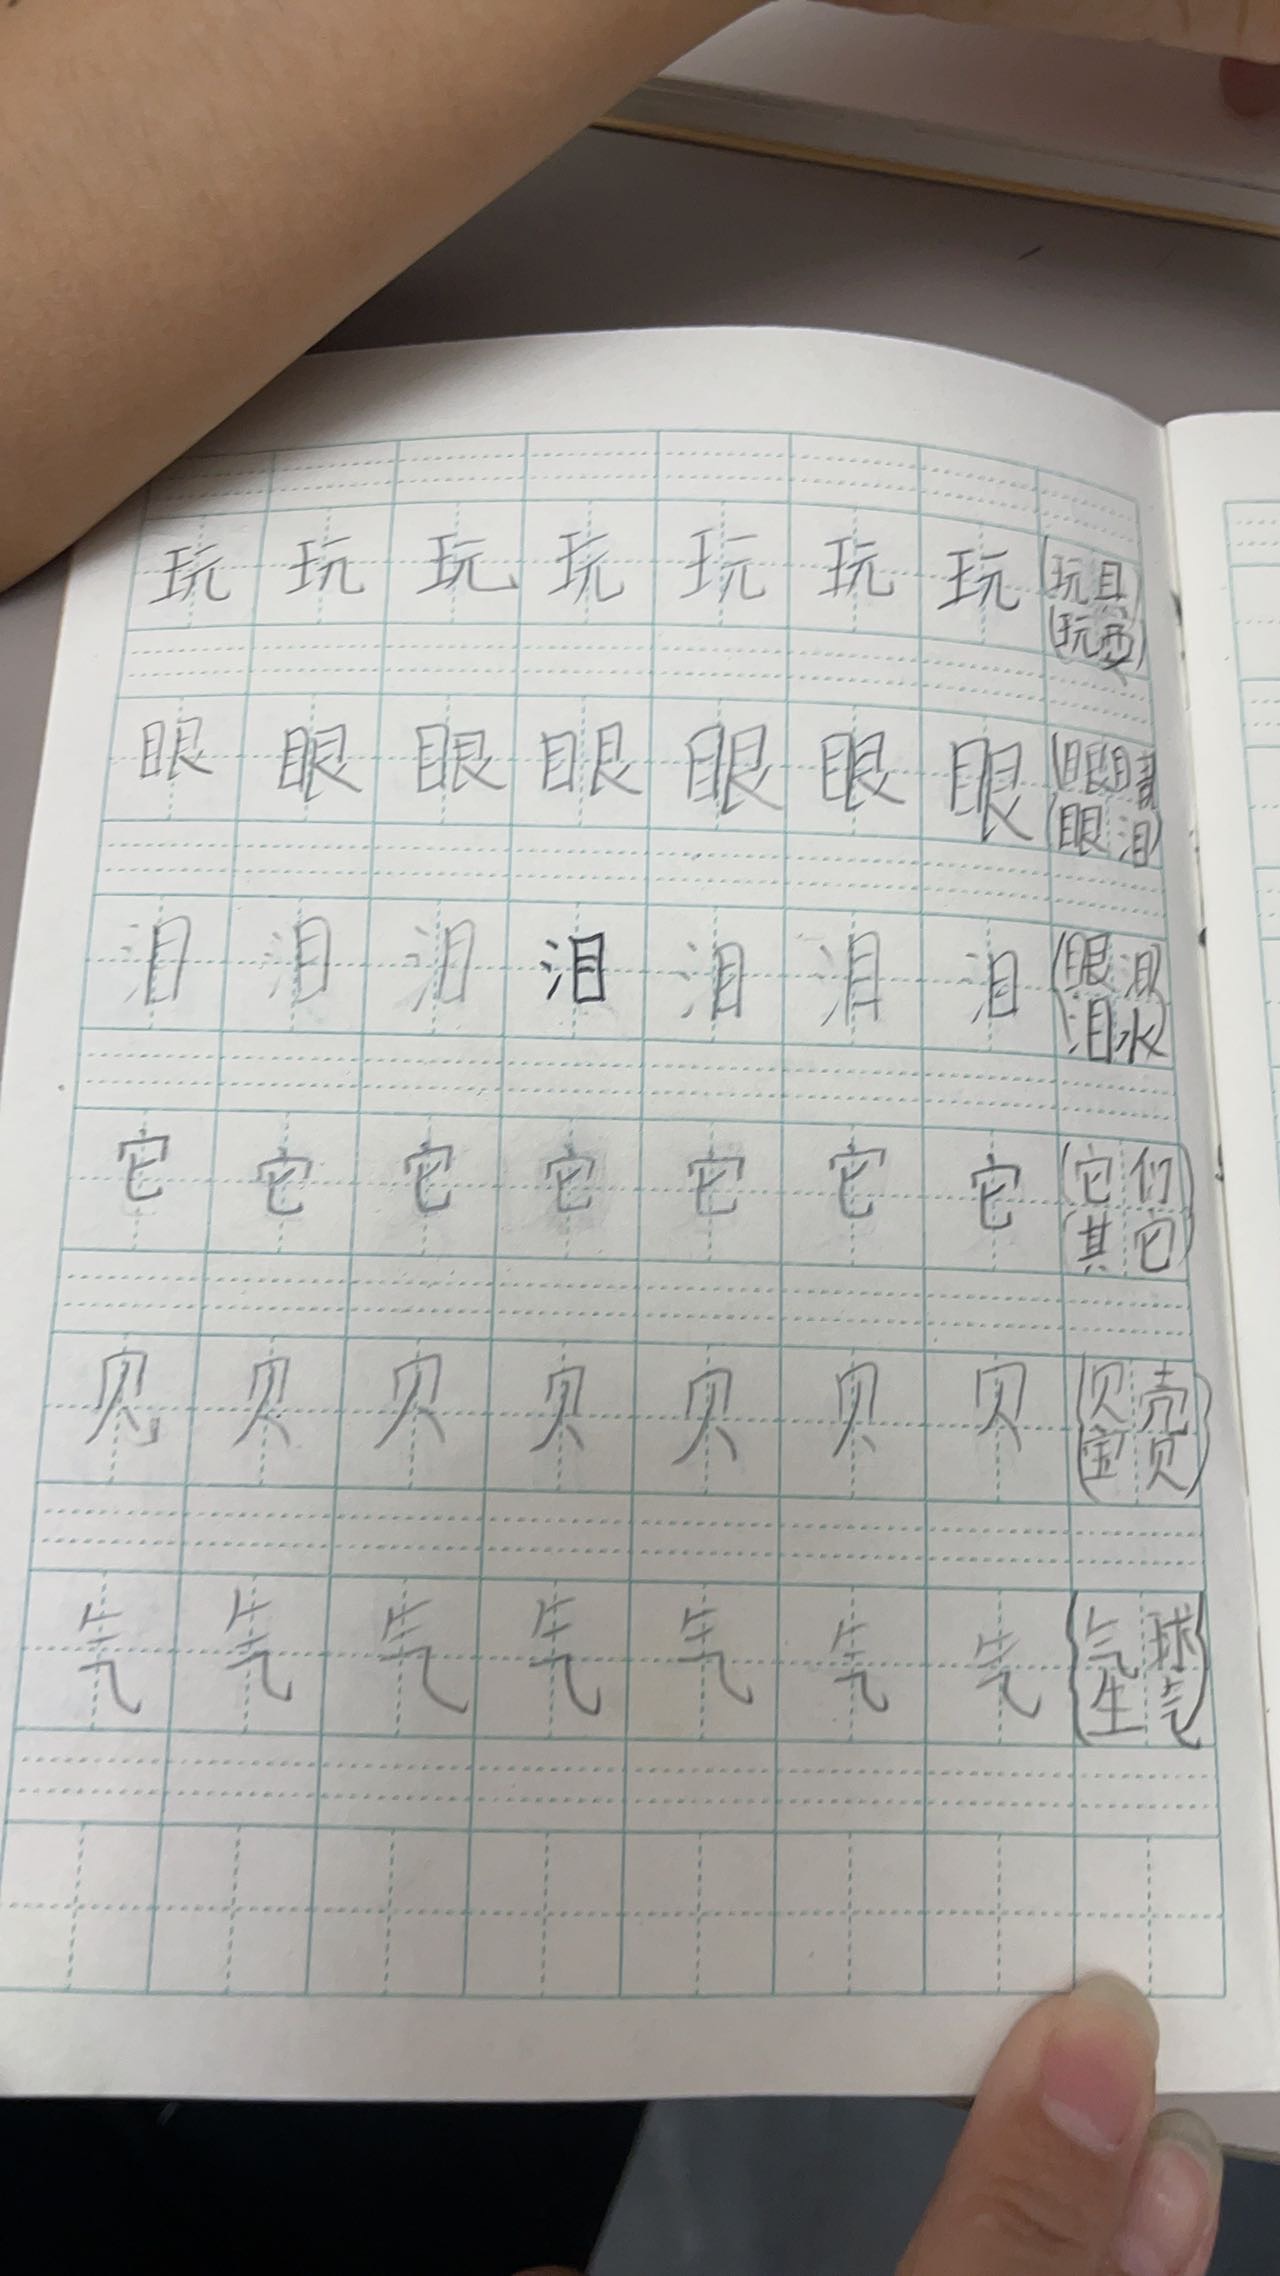 玩 玩 玩 玩 玩 玩 玩 (玩具)
(玩耍)
眼 眼 眼 眼 眼 眼 眼 (眼睛
(眼泪)
泪 泪 泪 泪 泪 泪 泪 (眼泪)
(泪水)
它 它 它 它 它 它 它 (它们
其它)
见 贝 贝 贝 贝 贝 贝 (贝壳
宝贝)
气 气 气 气 气 气 气 (气球
生气)